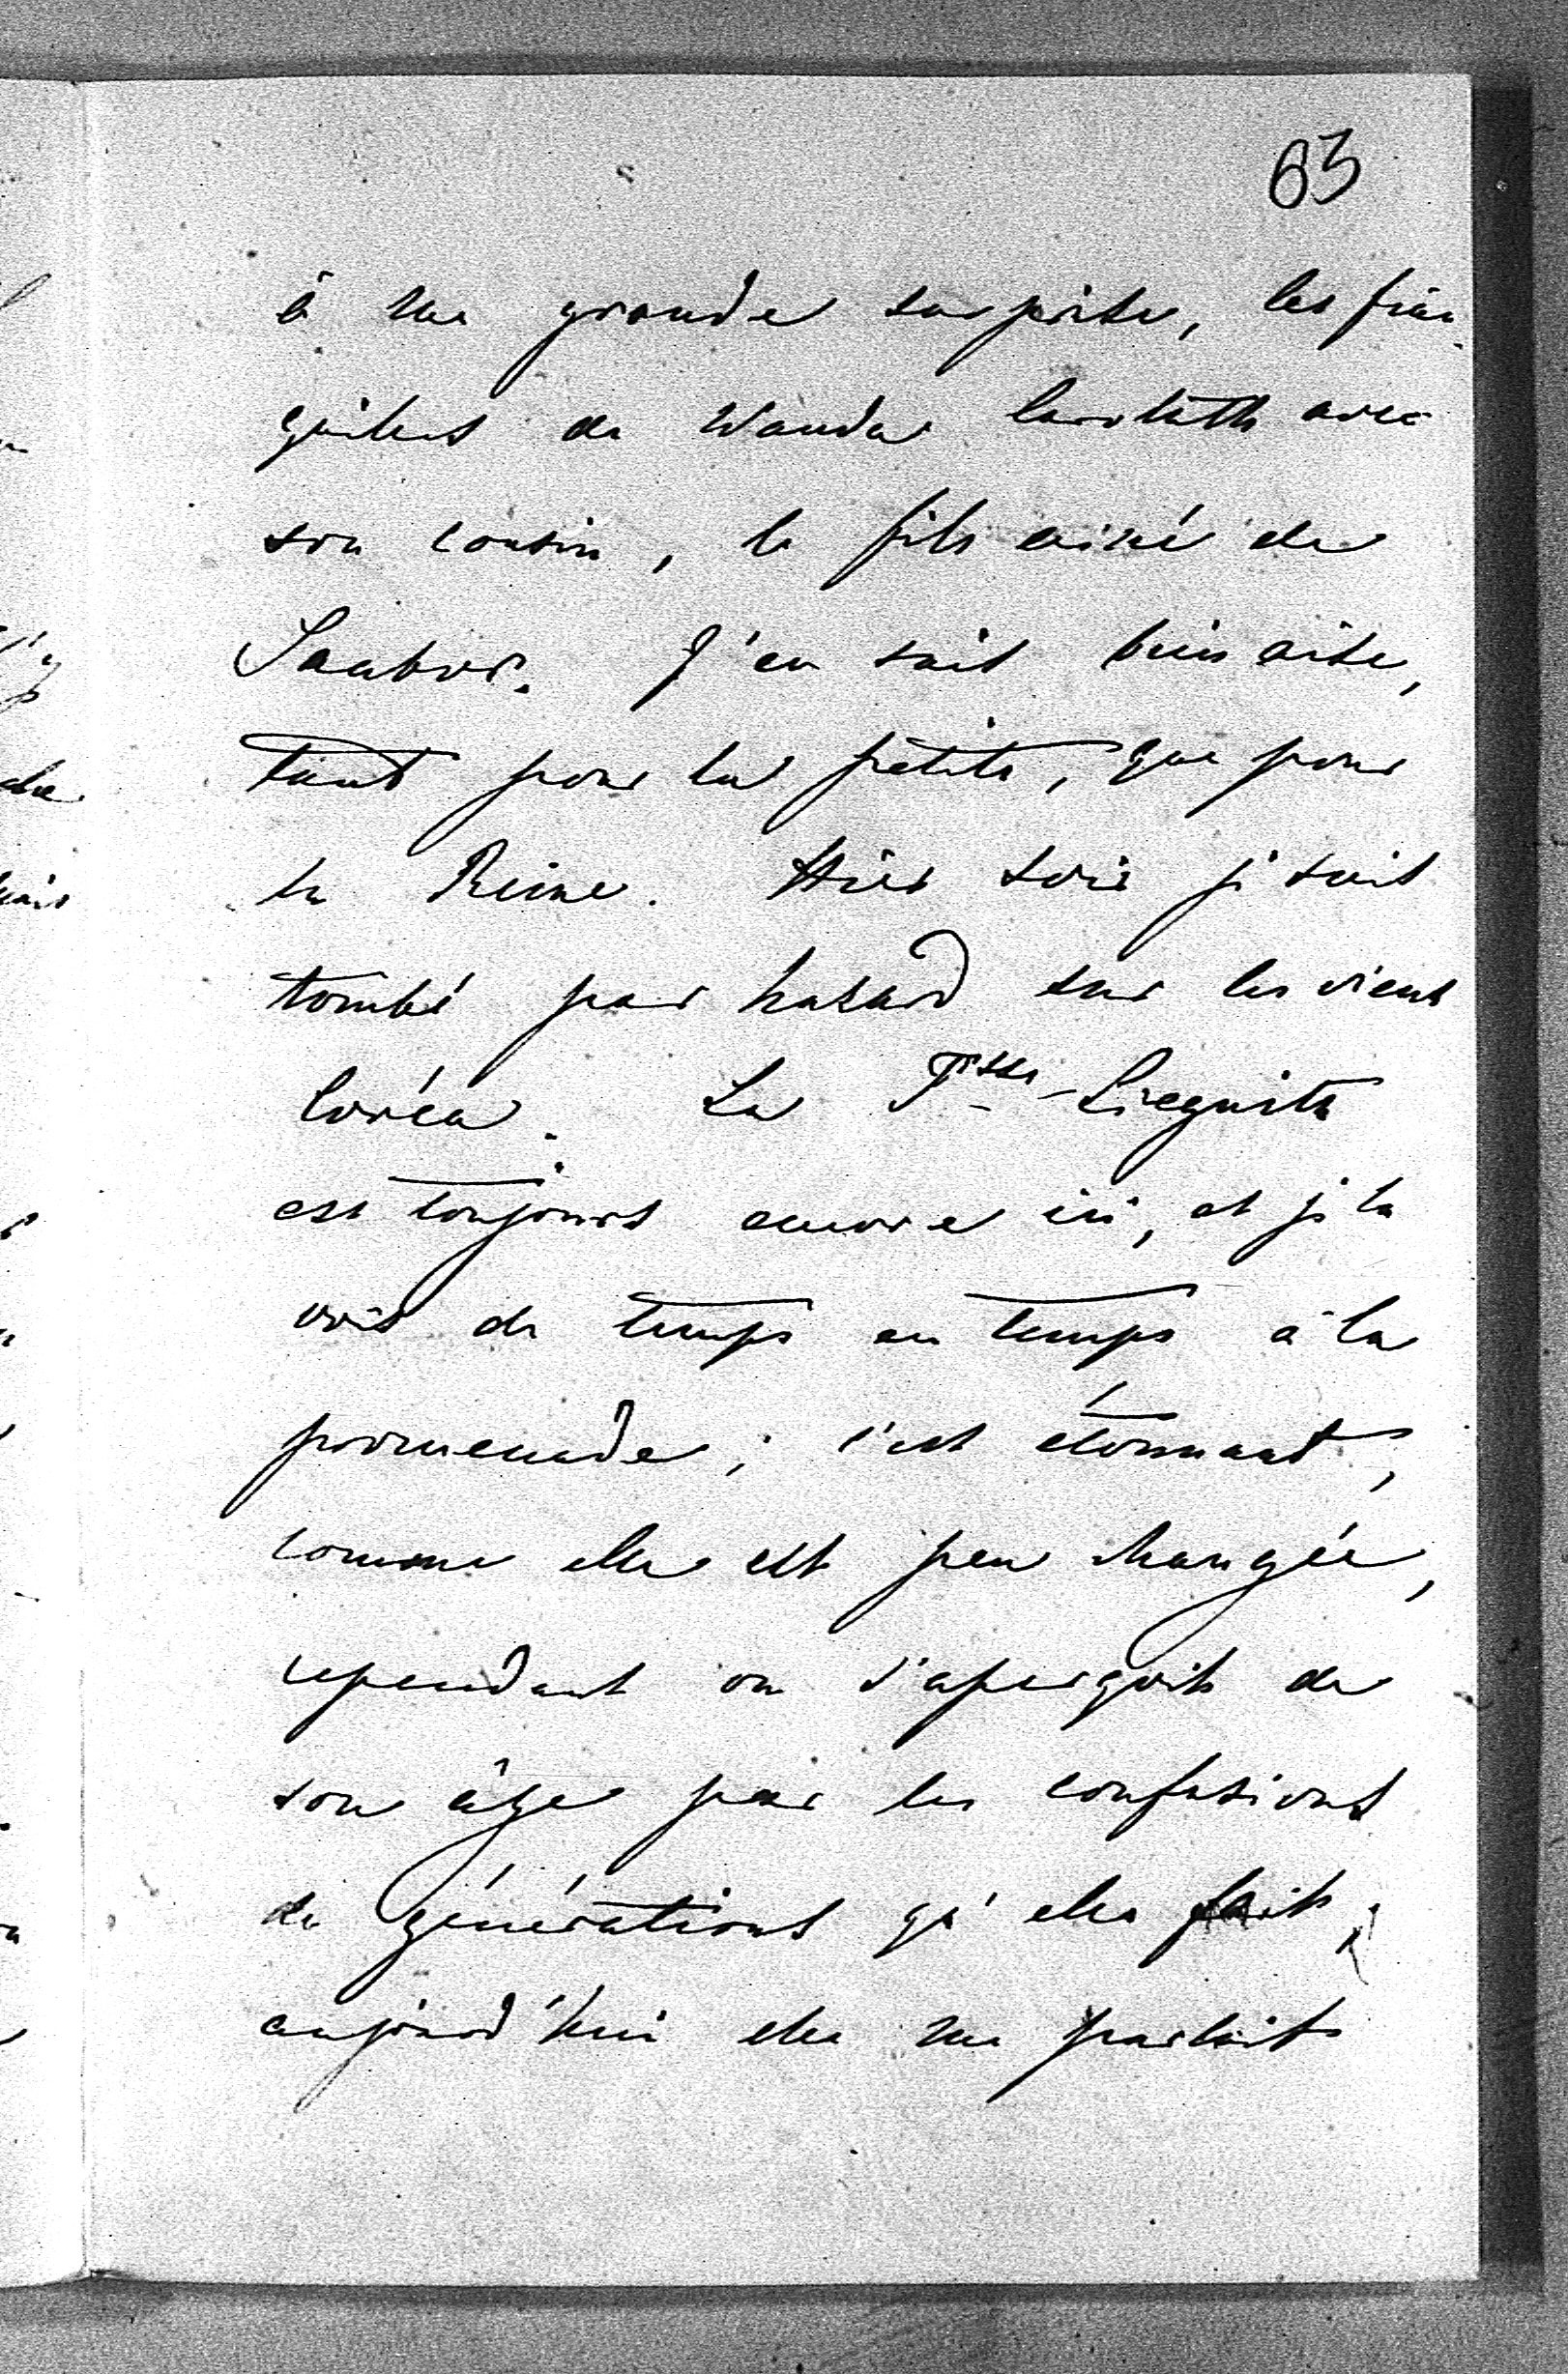 63
à ma grande surprise, les fian-
çailles de Wanda Carolath avec
son cousin, le fils ainé de
Saabor. J'en suis bien aise,
tant pour la petite, que pour
la Reine. Hier soir je suis
tombé par hasard sur les vieux
Coréa. La Psse Liegnitz
est toujours encore ici, et je la
vois de temps en temps à la
promenade; c'est étonnant,
comme elle est peu changée,
cependant on s'aperçoit de
son âge par les confusions
de générations qu'elle fait;
aujourd'hui elle me parlait